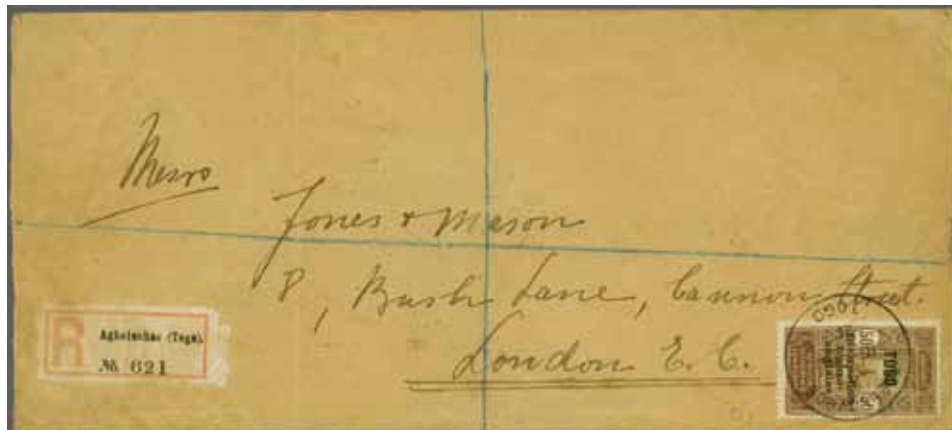 Messrs
Jones & Mason
8, Bush Lane, Cannon Street.
London E. C.
R
Agbeluhoe (Togo).
№ 621
TOGO
TOGO